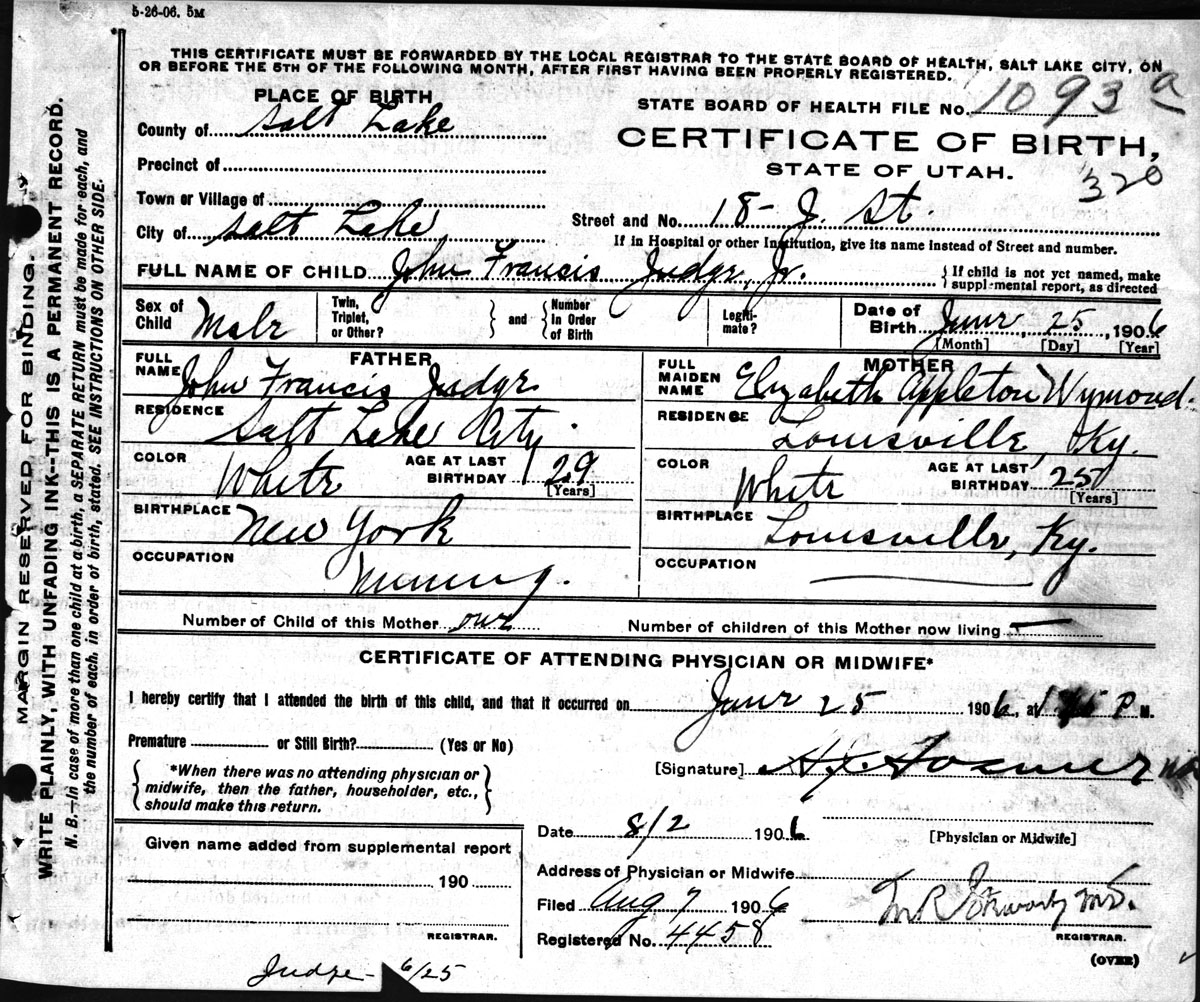 5-26-06. 5M
THIS CERTIFICATE MUST BE FORWARDED BY THE LOCAL REGISTRAR TO THE STATE BOARD OF HEALTH, SALT LAKE CITY, ON
OR BEFORE THE 5TH OF THE FOLLOWING MONTH, AFTER FIRST HAVING BEEN PROPERLY REGISTERED.
PLACE OF BIRTH
County of Salt Lake
Precinct of
Town or Village of
City of Salt Lake
STATE BOARD OF HEALTH FILE No. 1093 a
CERTIFICATE OF BIRTH,
STATE OF UTAH.
320
Street and No. 18- J. St.
If in Hospital or other Institution, give its name instead of Street and number.
FULL NAME OF CHILD John Francis Judge, Jr.
{ If child is not yet named, make
supplemental report, as directed
Sex of
Child Male
Twin,
Triplet,
or Other?
} and {
Number
In Order
of Birth
Legiti-
mate?
Date of
Birth June 25, 1906
[Month] [Day] [Year]
FATHER
FULL
NAME John Francis Judge
RESIDENCE
Salt Lake City.
COLOR White
AGE AT LAST
BIRTHDAY 29
[Years]
BIRTHPLACE New York
OCCUPATION
Mining.
MOTHER
FULL
MAIDEN
NAME Elizabeth Appleton Wymond.
RESIDENCE
Louisville, Ky.
COLOR White
AGE AT LAST
BIRTHDAY 25
[Years]
BIRTHPLACE
Louisville, Ky.
OCCUPATION
Number of Child of this Mother one
Number of children of this Mother now living —
CERTIFICATE OF ATTENDING PHYSICIAN OR MIDWIFE*
I hereby certify that I attended the birth of this child, and that it occurred on June 25 1906, at P M.
Premature or Still Birth? (Yes or No)
{ *When there was no attending physician or
midwife, then the father, householder, etc.,
should make this return. }
[Signature]
Date 8/2 1906
[Physician or Midwife]
Given name added from supplemental report
190
REGISTRAR.
Address of Physician or Midwife
Filed Aug 7 1906
Registered No. 4458
REGISTRAR.
(OVER)
Judge - 6/25
MARGIN RESERVED FOR BINDING.
WRITE PLAINLY, WITH UNFADING INK--THIS IS A PERMANENT RECORD.
N. B.—In case of more than one child at a birth, a SEPARATE RETURN must be made for each, and
the number of each, in order of birth, stated. SEE INSTRUCTIONS ON OTHER SIDE.